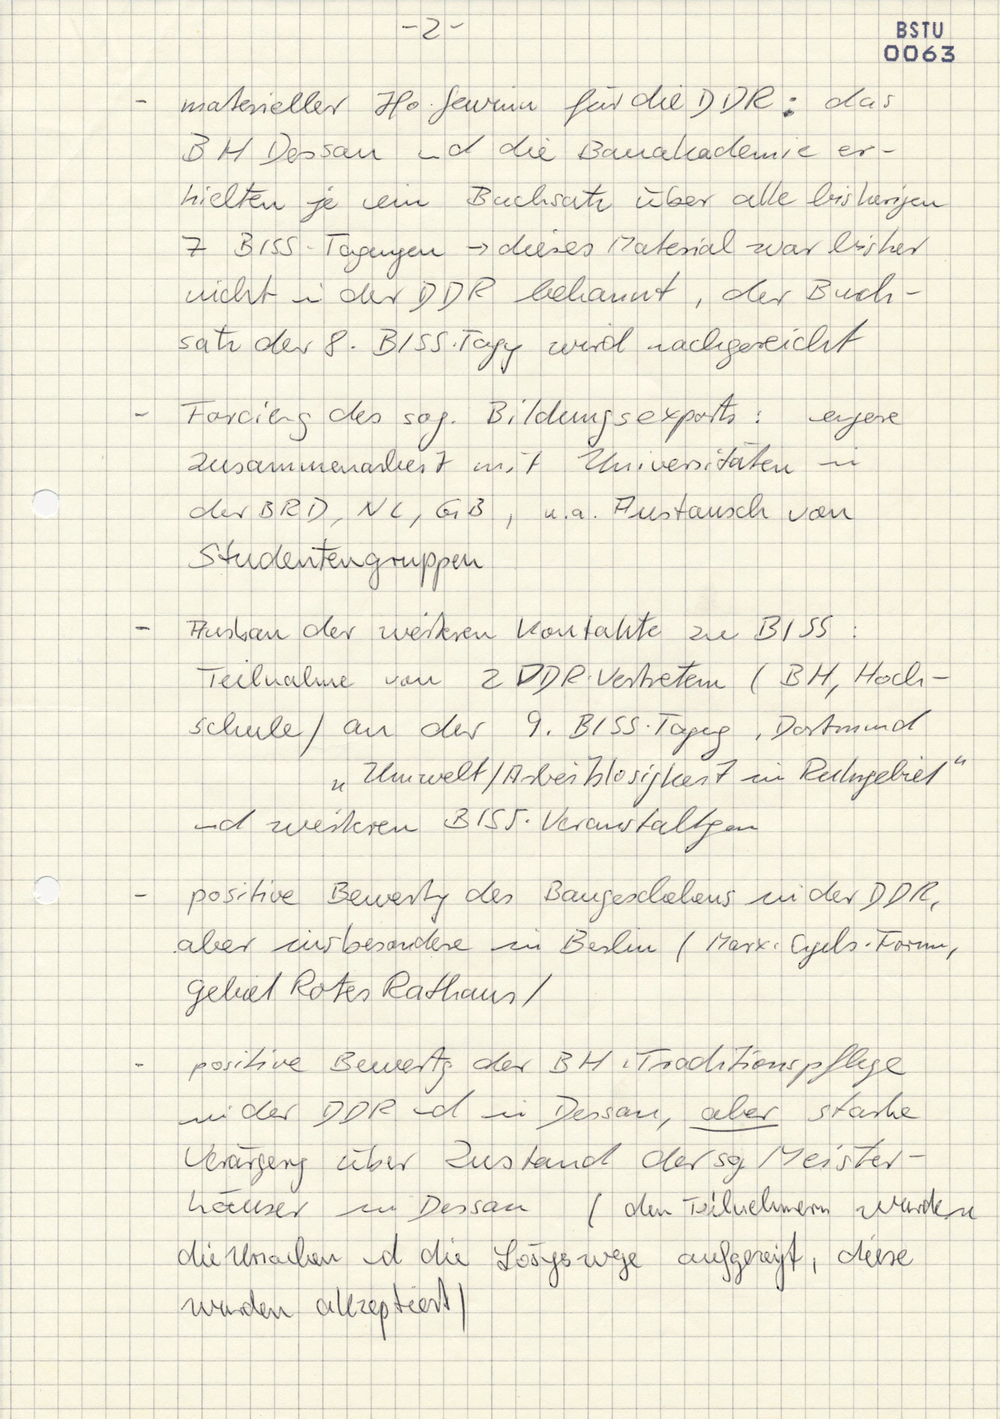 -2-
BSTU
0063
- materieller Gewinn für die DDR: das
BH Dessau und die Bauakademie er-
hielten je ein Buchsatz über alle bisherigen
7 BISS-Tagungen → dieses Material war bisher
nicht in der DDR bekannt, der Buch-
satz der 8. BISS-Tagg wird nachgereicht
- Forcierg des sog. Bildungsexports: engere
Zusammenarbeit mit Universitäten in
der BRD, NL, GB, u.a. Austausch von
Studentengruppen
- Ausbau der weiteren Kontakte zu BISS:
Teilnahme von 2 DDR-Vertretern (BH, Hoch-
schule) an der 9. BISS-Tagg, Dortmund
„Umwelt/Arbeitslosigkeit im Ruhrgebiet“
und weiteren BISS-Veranstaltgen
- positive Bewertg des Baugeschehens in der DDR,
aber insbesondere in Berlin (Marx-Engels-Forum,
Gebiet Rotes Rathaus)
- positive Bewertg der BH-Traditionspflege
in der DDR und in Dessau, aber starke
Verärgerg über Zustand der sog Meister-
häuser in Dessau (den Teilnehmern wurden
die Ursachen und die Lösgswege aufgezeigt, diese
wurden akzeptiert)